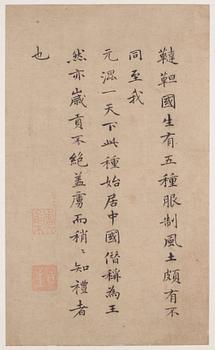 韃靼國生有五種服制風土頗有不
同至我
元混一天下此種始居中國僭稱為王
然亦歲貢不絕蓋虜而稍〻知禮者
也